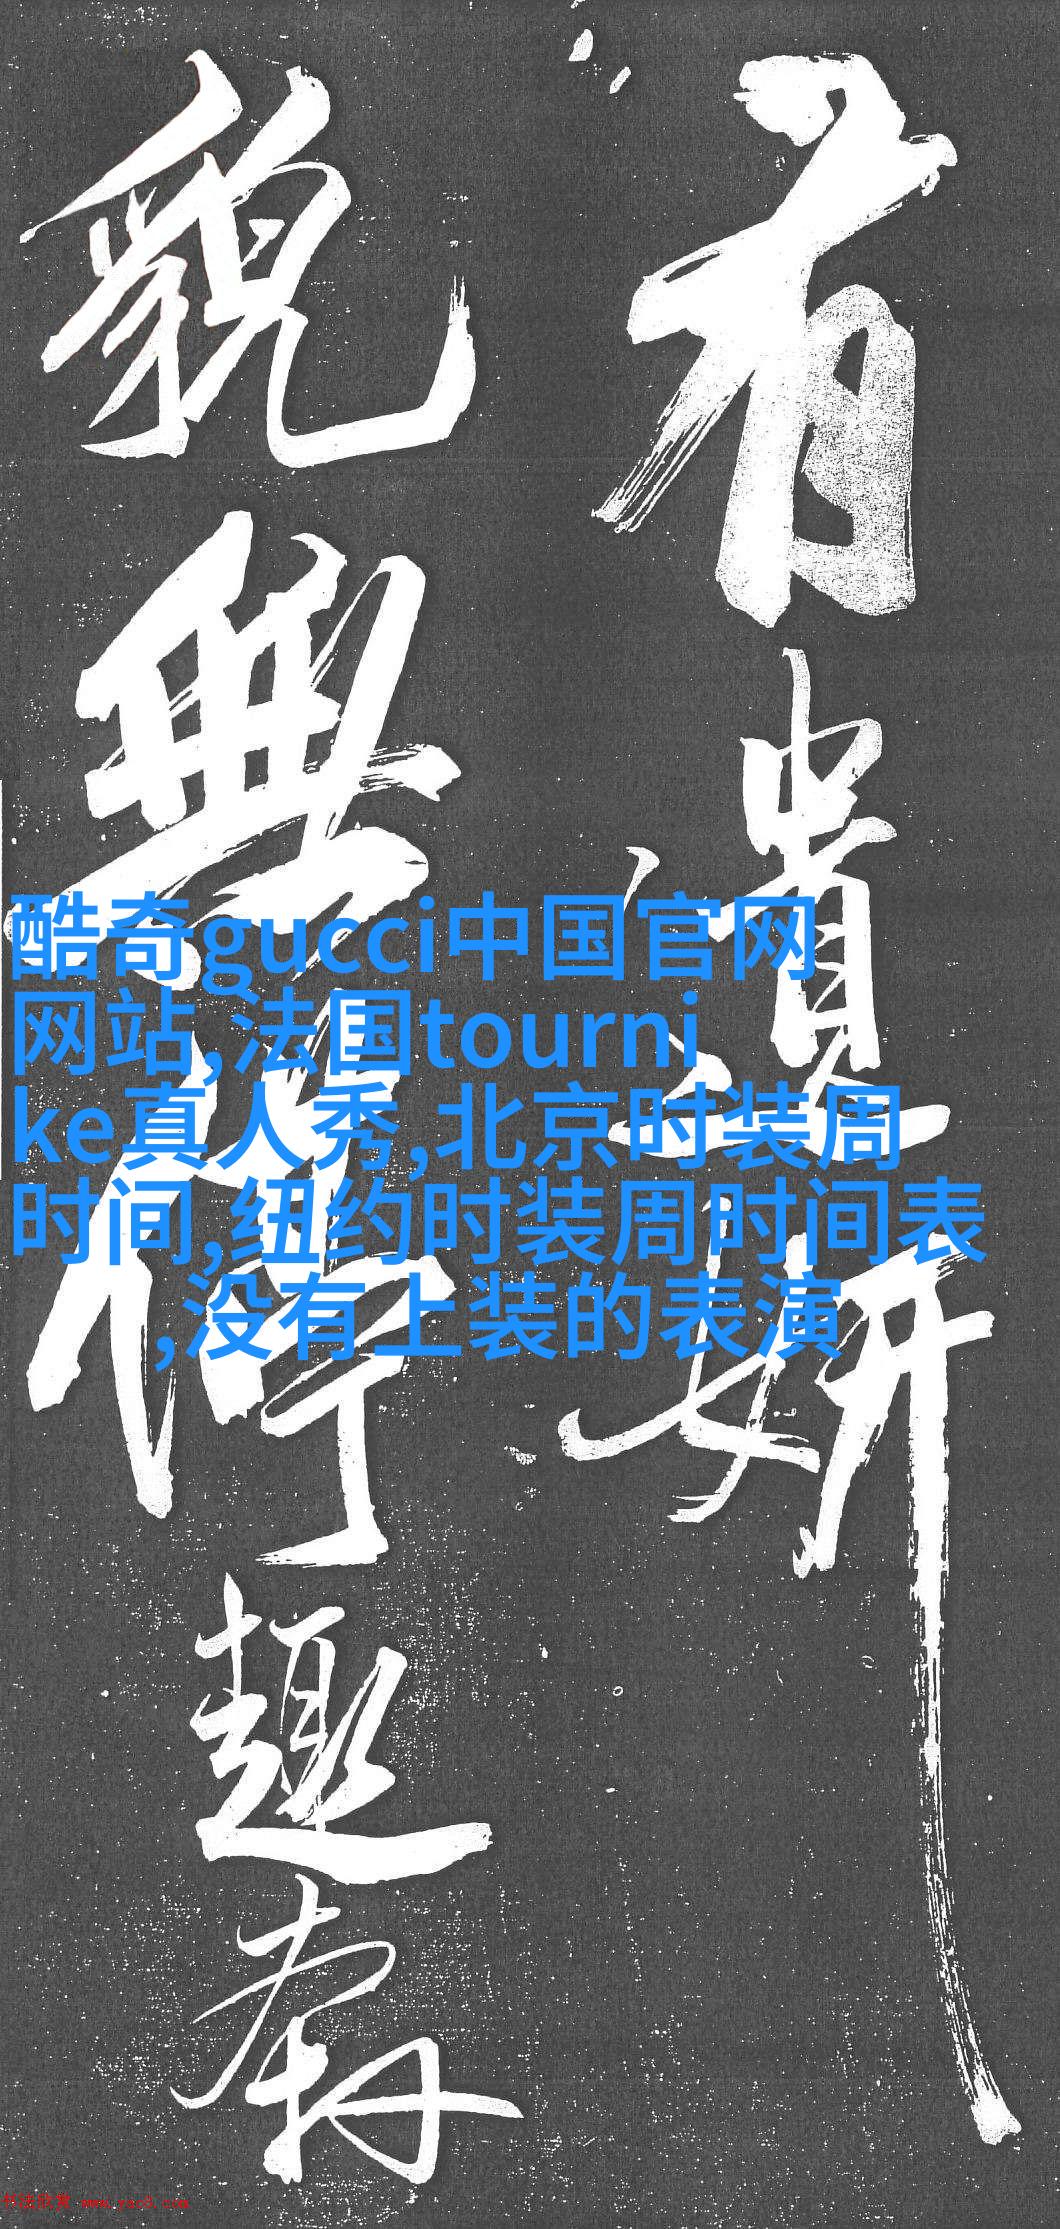 有遺妍
貌無停趣
酷奇gucci中国官网
网站,法国tourni
ke真人秀,北京时装周
时间,纽约时装周时间表
,没有上装的表演
书法欣赏